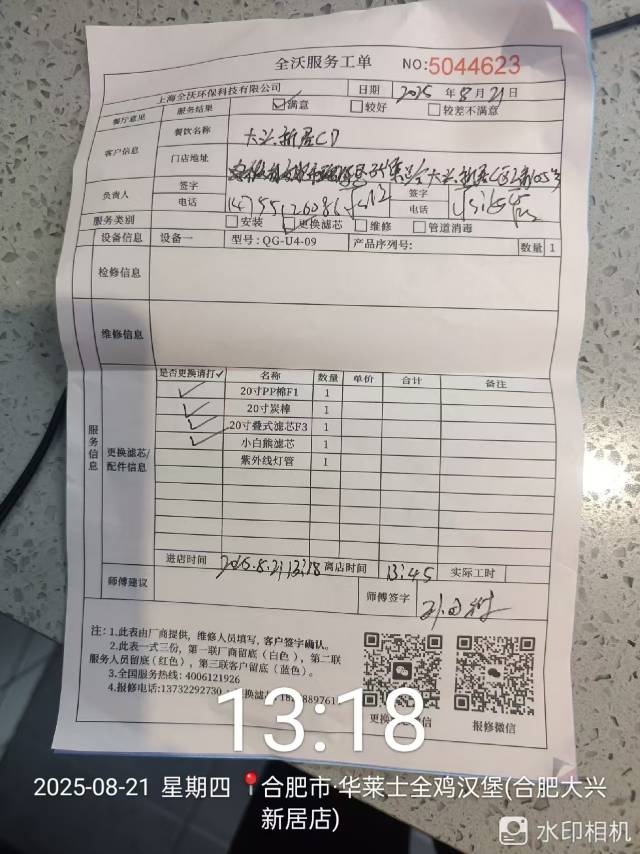 全沃服务工单 NO:5044623
上海全沃环保科技有限公司 日期 2025 年 8 月 21 日
餐厅意见 服务结果 满意 较好 较差不满意
客户信息 餐饮名称 大兴新居CD
门店地址
负责人 签字 电话 签字 电话
服务类别 安装 更换滤芯 维修 管道消毒
设备信息 设备一 型号: QG-U4-09 产品序列号: 数量 1
检修信息
维修信息
服务信息
更换滤芯/配件信息
是否更换请打✓ 名称 数量 单价 合计 备注
✓ 20寸PP棉F1 1
✓ 20寸炭棒 1
✓ 20寸叠式滤芯F3 1
✓ 小白熊滤芯 1
紫外线灯管 1
进店时间 2025.8.21 13:18 离店时间 13:45 实际工时
师傅建议 师傅签字
注: 1.此表由厂商提供, 维修人员填写, 客户签字确认。
2.此表一式三份, 第一联厂商留底(白色), 第二联
服务人员留底(红色), 第三联客户留底(蓝色)。
3.全国服务热线: 4006121926
4.报修电话:13732292730
报修微信
13:18
2025-08-21 星期四 合肥市·华莱士全鸡汉堡(合肥大兴
新居店)
水印相机